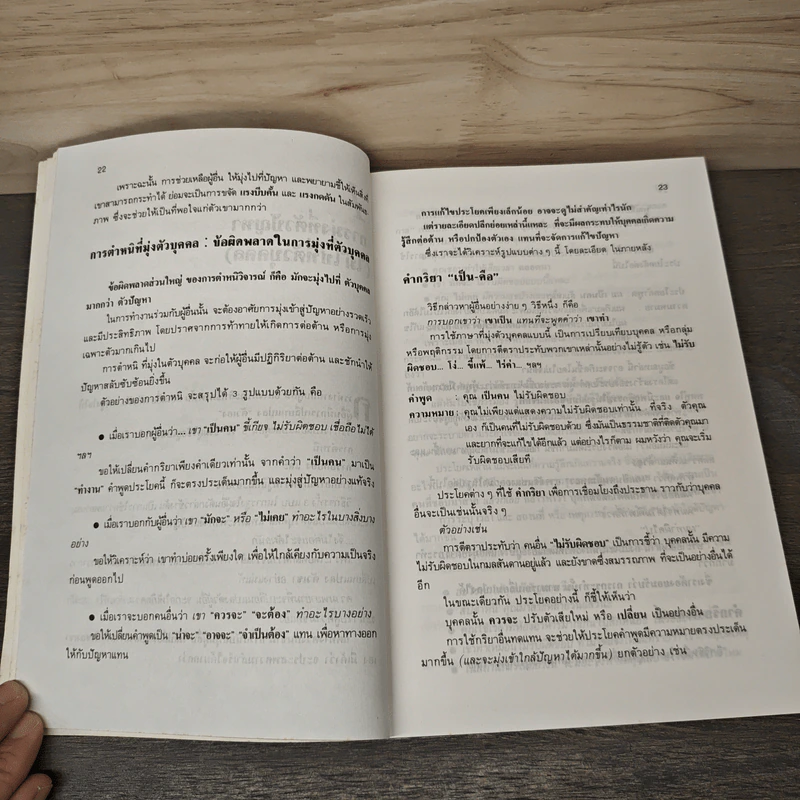 22
เพราะฉะนั้น การช่วยเหลือผู้อื่น ให้มุ่งไปที่ปัญหา และพยายามชี้ให้เห็นสิ่งที่
เขาสามารถกระทำได้ ย่อมจะเป็นการขจัด แรงบีบคั้น และ แรงกดดัน ในสัมพันธ
ภาพ ซึ่งจะช่วยให้เป็นที่พอใจแก่ตัวเขามากกว่า
การตำหนิที่มุ่งตัวบุคคล : ข้อผิดพลาดในการมุ่งที่ตัวบุคคล
ข้อผิดพลาดส่วนใหญ่ ของการตำหนิวิจารณ์ ก็คือ มักจะมุ่งไปที่ ตัวบุคคล
มากกว่า ตัวปัญหา
ในการทำงานร่วมกับผู้อื่นนั้น จะต้องอาศัยการมุ่งเข้าสู่ปัญหาอย่างรวดเร็ว
และมีประสิทธิภาพ โดยปราศจากการท้าทายให้เกิดการต่อต้าน หรือการมุ่ง
เฉพาะตัวมากเกินไป
การตำหนิ ที่มุ่งในตัวบุคคล จะก่อให้ผู้อื่นมีปฏิกิริยาต่อต้าน และชักนำให้
ปัญหาสลับซับซ้อนยิ่งขึ้น
ตัวอย่างของการตำหนิ จะสรุปได้ 3 รูปแบบด้วยกัน คือ
● เมื่อเราบอกผู้อื่นว่า... เขา "เป็นคน" ขี้เกียจ ไม่รับผิดชอบ เชื่อถือไม่ได้
ฯลฯ
ขอให้เปลี่ยนคำกริยาเพียงคำเดียวเท่านั้น จากคำว่า "เป็นคน" มาเป็น
"ทำงาน" คำพูดประโยคนี้ ก็จะตรงประเด็นมากขึ้น และมุ่งสู่ปัญหาอย่างแท้จริง
● เมื่อเราบอกกับผู้อื่นว่า เขา "มักจะ" หรือ "ไม่เคย" ทำอะไรในบางสิ่งบาง
อย่าง
ขอให้วิเคราะห์ว่า เขาทำบ่อยครั้งเพียงใด เพื่อให้ใกล้เคียงกับความเป็นจริง
ก่อนพูดออกไป
● เมื่อเราจะบอกคนอื่นว่า เขา "ควรจะ" "จะต้อง" ทำอะไรบางอย่าง
ขอให้เปลี่ยนคำพูดเป็น "น่าจะ" "อาจจะ" "จำเป็นต้อง" แทน เพื่อหาทางออก
ให้กับปัญหาแทน
23
การแก้ไขประโยคเพียงเล็กน้อย อาจจะดูไม่สำคัญเท่าไรนัก
แต่รายละเอียดปลีกย่อยเหล่านี้แหละ ที่จะมีผลกระทบให้บุคคลเกิดความ
รู้สึกต่อต้าน หรือปกป้องตัวเอง แทนที่จะจัดการแก้ไขปัญหา
ซึ่งเราจะได้วิเคราะห์รูปแบบต่าง ๆ นี้ โดยละเอียด ในภายหลัง
คำกริยา "เป็น-คือ"
วิธีกล่าวหาผู้อื่นอย่างง่าย ๆ วิธีหนึ่ง ก็คือ
การบอกเขาว่า เขาเป็น แทนที่จะพูดคำว่า เขาทำ
การใช้ภาษาที่มุ่งตัวบุคคลแบบนี้ เป็นการเปรียบเทียบบุคคล หรือกลุ่ม
หรือพฤติกรรม โดยการตีตราประทับพวกเขาเหล่านั้นอย่างไม่รู้ตัว เช่น ไม่รับ
ผิดชอบ... โง่... ขี้แพ้... ไร้ค่า... ฯลฯ
คำพูด : คุณ เป็นคน ไม่รับผิดชอบ
ความหมาย : คุณไม่เพียงแต่แสดงความไม่รับผิดชอบเท่านั้น ที่จริง ตัวคุณ
เอง ก็เป็นคนที่ไม่รับผิดชอบด้วย ซึ่งมันเป็นธรรมชาติที่ติดตัวคุณมา
และยากที่จะแก้ไขได้อีกแล้ว แต่อย่างไรก็ตาม ผมหวังว่า คุณจะเริ่ม
รับผิดชอบเสียที
ประโยคต่าง ๆ ที่ใช้ คำกริยา เพื่อการเชื่อมโยงถึงประธาน ราวกับว่าบุคคล
อื่นจะเป็นเช่นนั้นจริง ๆ
ตัวอย่างเช่น
การตีตราประทับว่า คนอื่น "ไม่รับผิดชอบ" เป็นการชี้ว่า บุคคลนั้น มีความ
ไม่รับผิดชอบในกมลสันดานอยู่แล้ว และยังขาดซึ่งสมรรถภาพ ที่จะเป็นอย่างอื่นได้
อีก
ในขณะเดียวกัน ประโยคอย่างนี้ ก็ชี้ให้เห็นว่า
บุคคลนั้น ควรจะ ปรับตัวเสียใหม่ หรือ เปลี่ยน เป็นอย่างอื่น
การใช้กริยาอื่นทดแทน จะช่วยให้ประโยคคำพูดมีความหมายตรงประเด็น
มากขึ้น (และจะมุ่งเข้าใกล้ปัญหาได้มากขึ้น) ยกตัวอย่าง เช่น